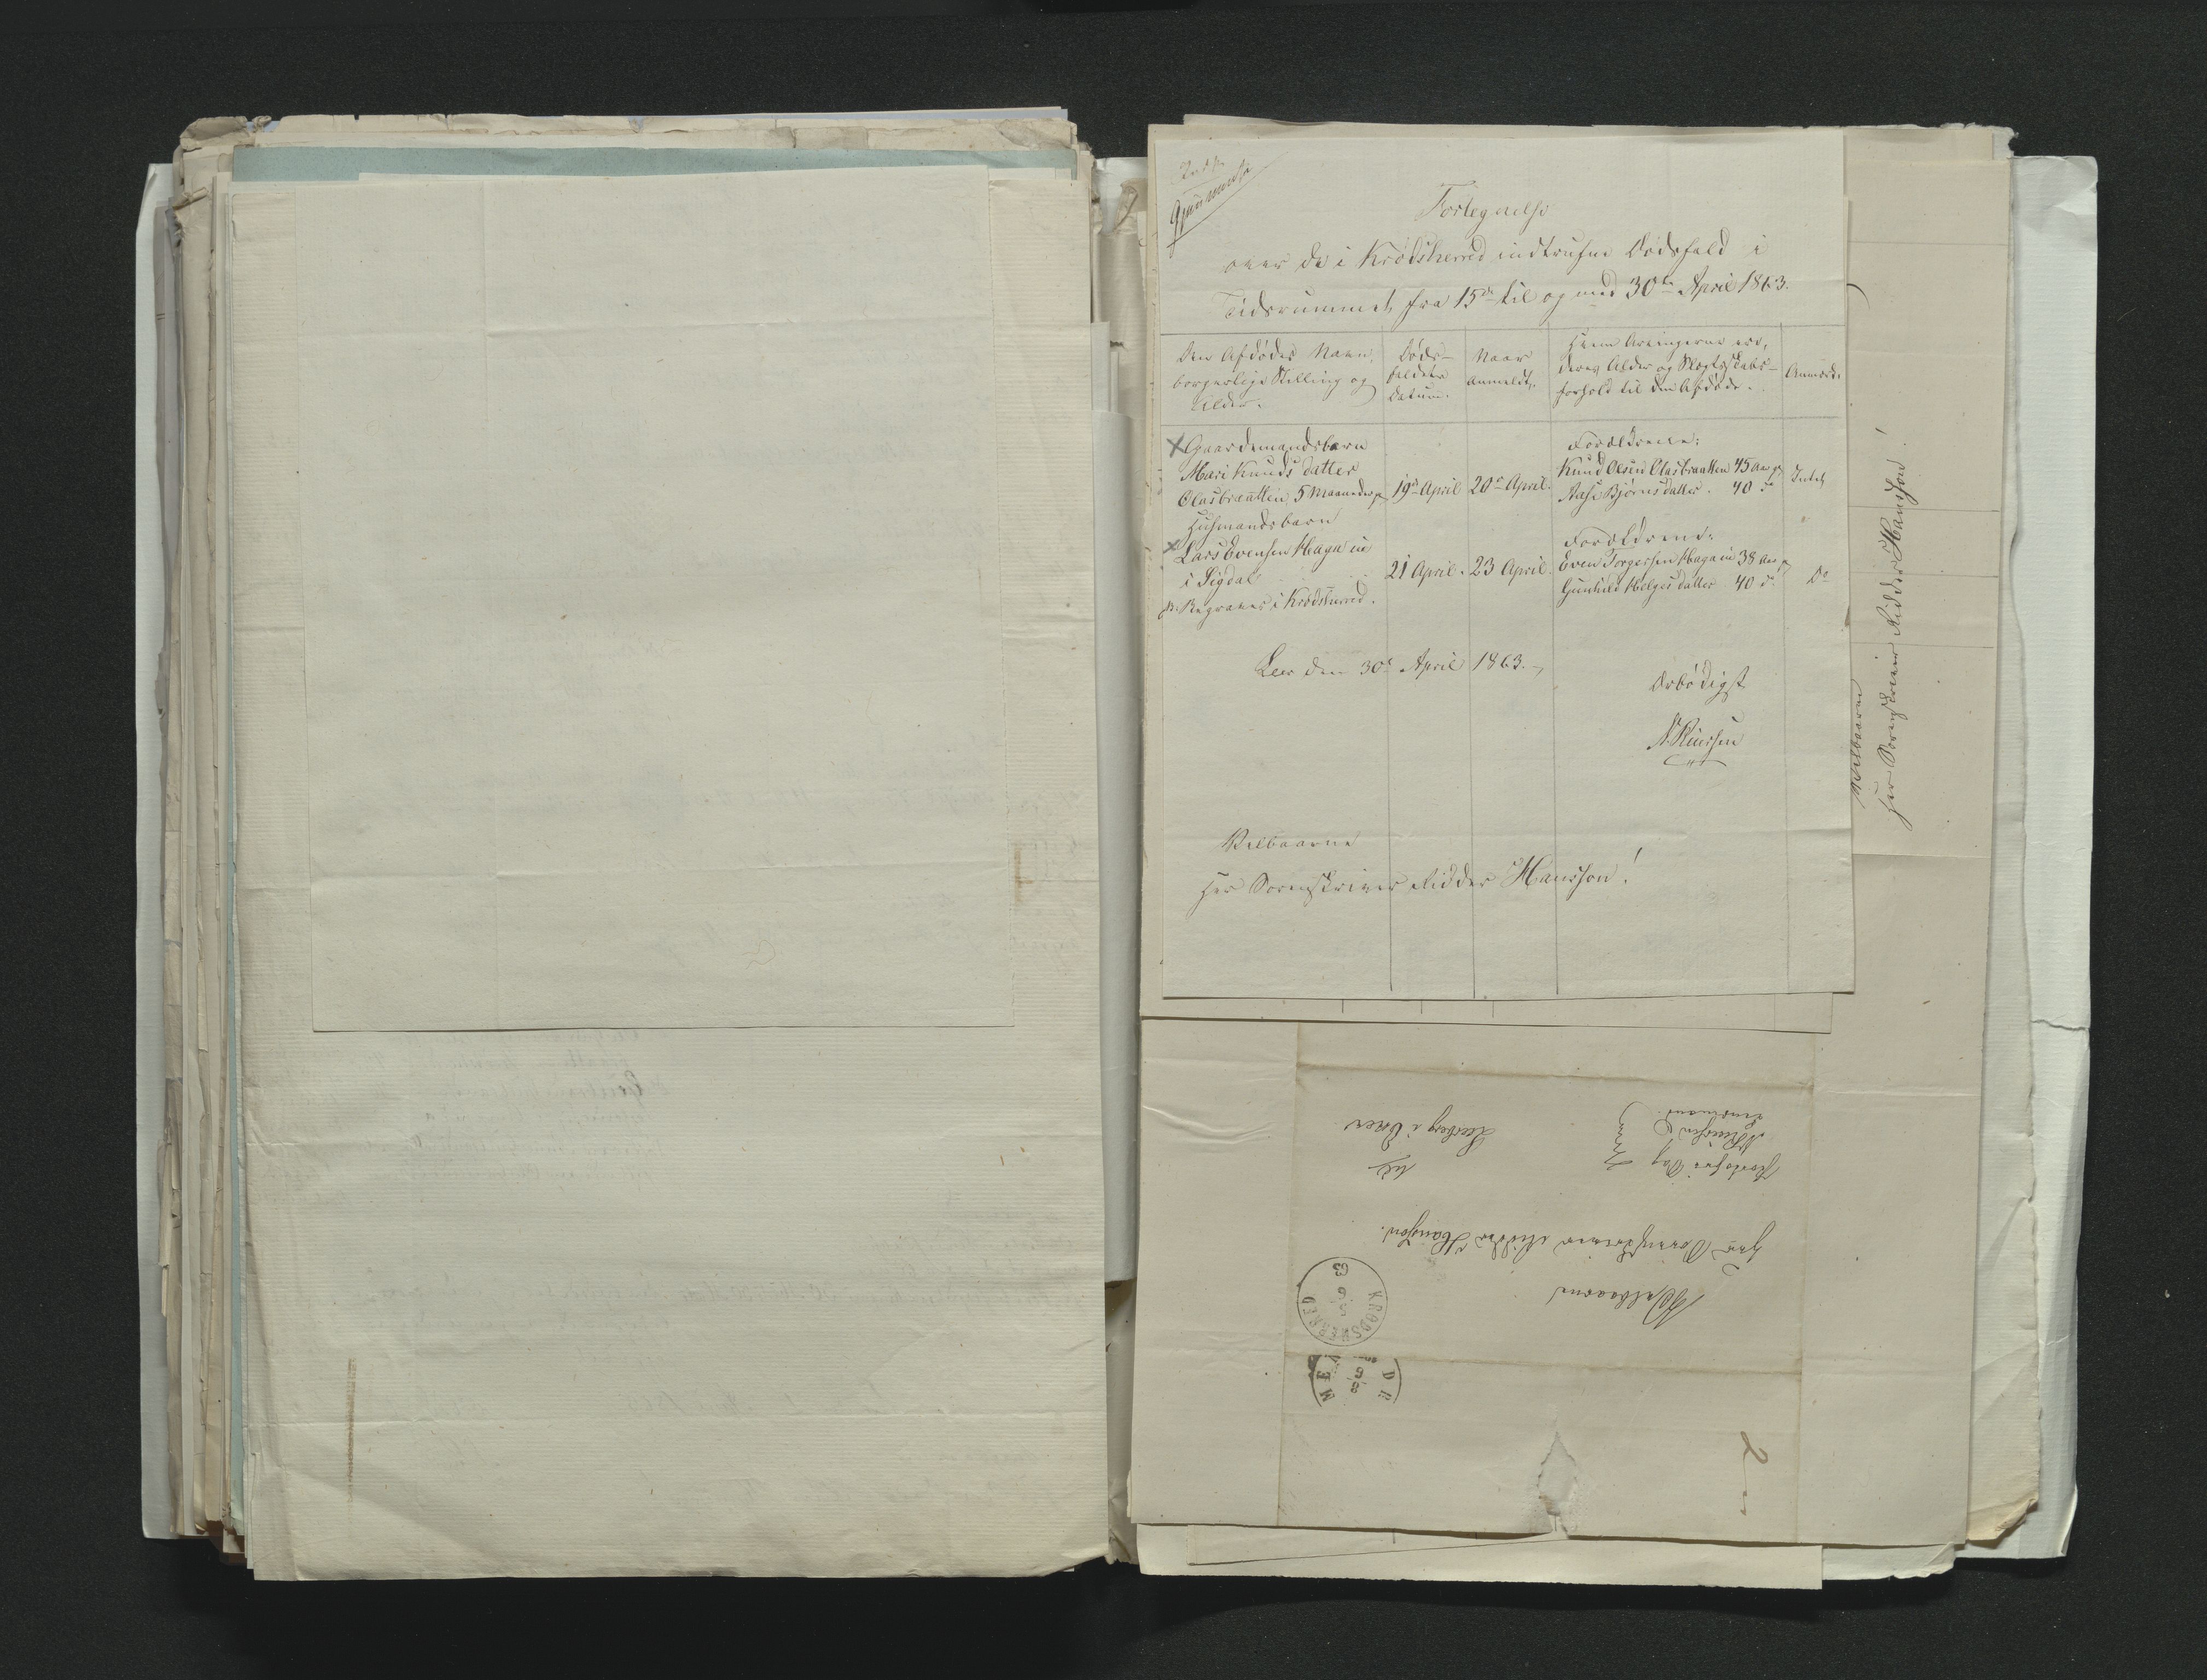 Indf.
Gjennemseet
Fortegnelse
over de i Krødsherred indtrufne Dødsfald i
Tidsrummet fra 15de til og med 30te April 1863.
Den Afdødes Navn, borgerlige Stilling og Alder.
Døds-faldets Datum.
Naar Anmeldt.
Hvem Arvingerne ere, deres Alder og Slægtskabs-forhold til den Afdøde.
Anmærk.
Gaardmandsbarn
Mari Knudsdatter
Olasbraatten 5 Maaneder gl
19de April
20de April.
Forældrene:
Knud Olsen Olasbraatten 45 Aar gl
Aase Bjørnsdatter. 40 do
Intet
Husmandsbarn
Lars Evensen Hagaie
i Sigdal
NB. Begraves i Krødsherred.
21 April.
23 April.
Forældrene:
Even Torgersen Hagaie 38 Aar gl
Gunhild Helgesdatter 40 do
Do
Leer den 30te April 1863.
Ærbødigst
Velbaarne
Herr Sorenskriver Ridder Hansson!
Velbaarne
Herr Sorenskriver Ridder Hansson!
Velbaarne
Herr Sorenskriver Ridder Hansson.
til
i Eker
Portofri Sag
Lensmand
KRØDSHERRED